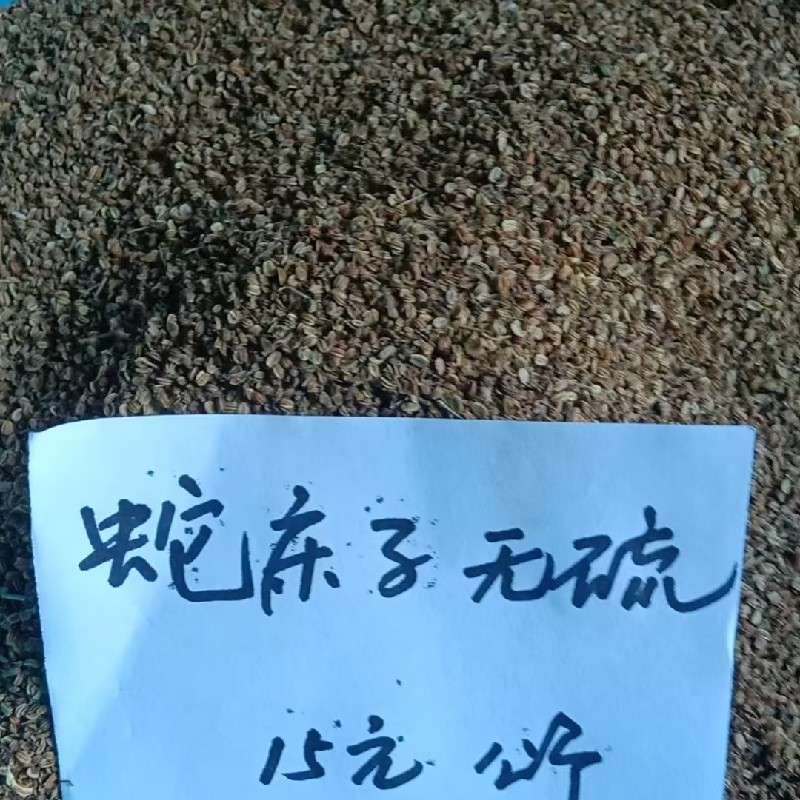 蛇床子 无硫
15元 公斤